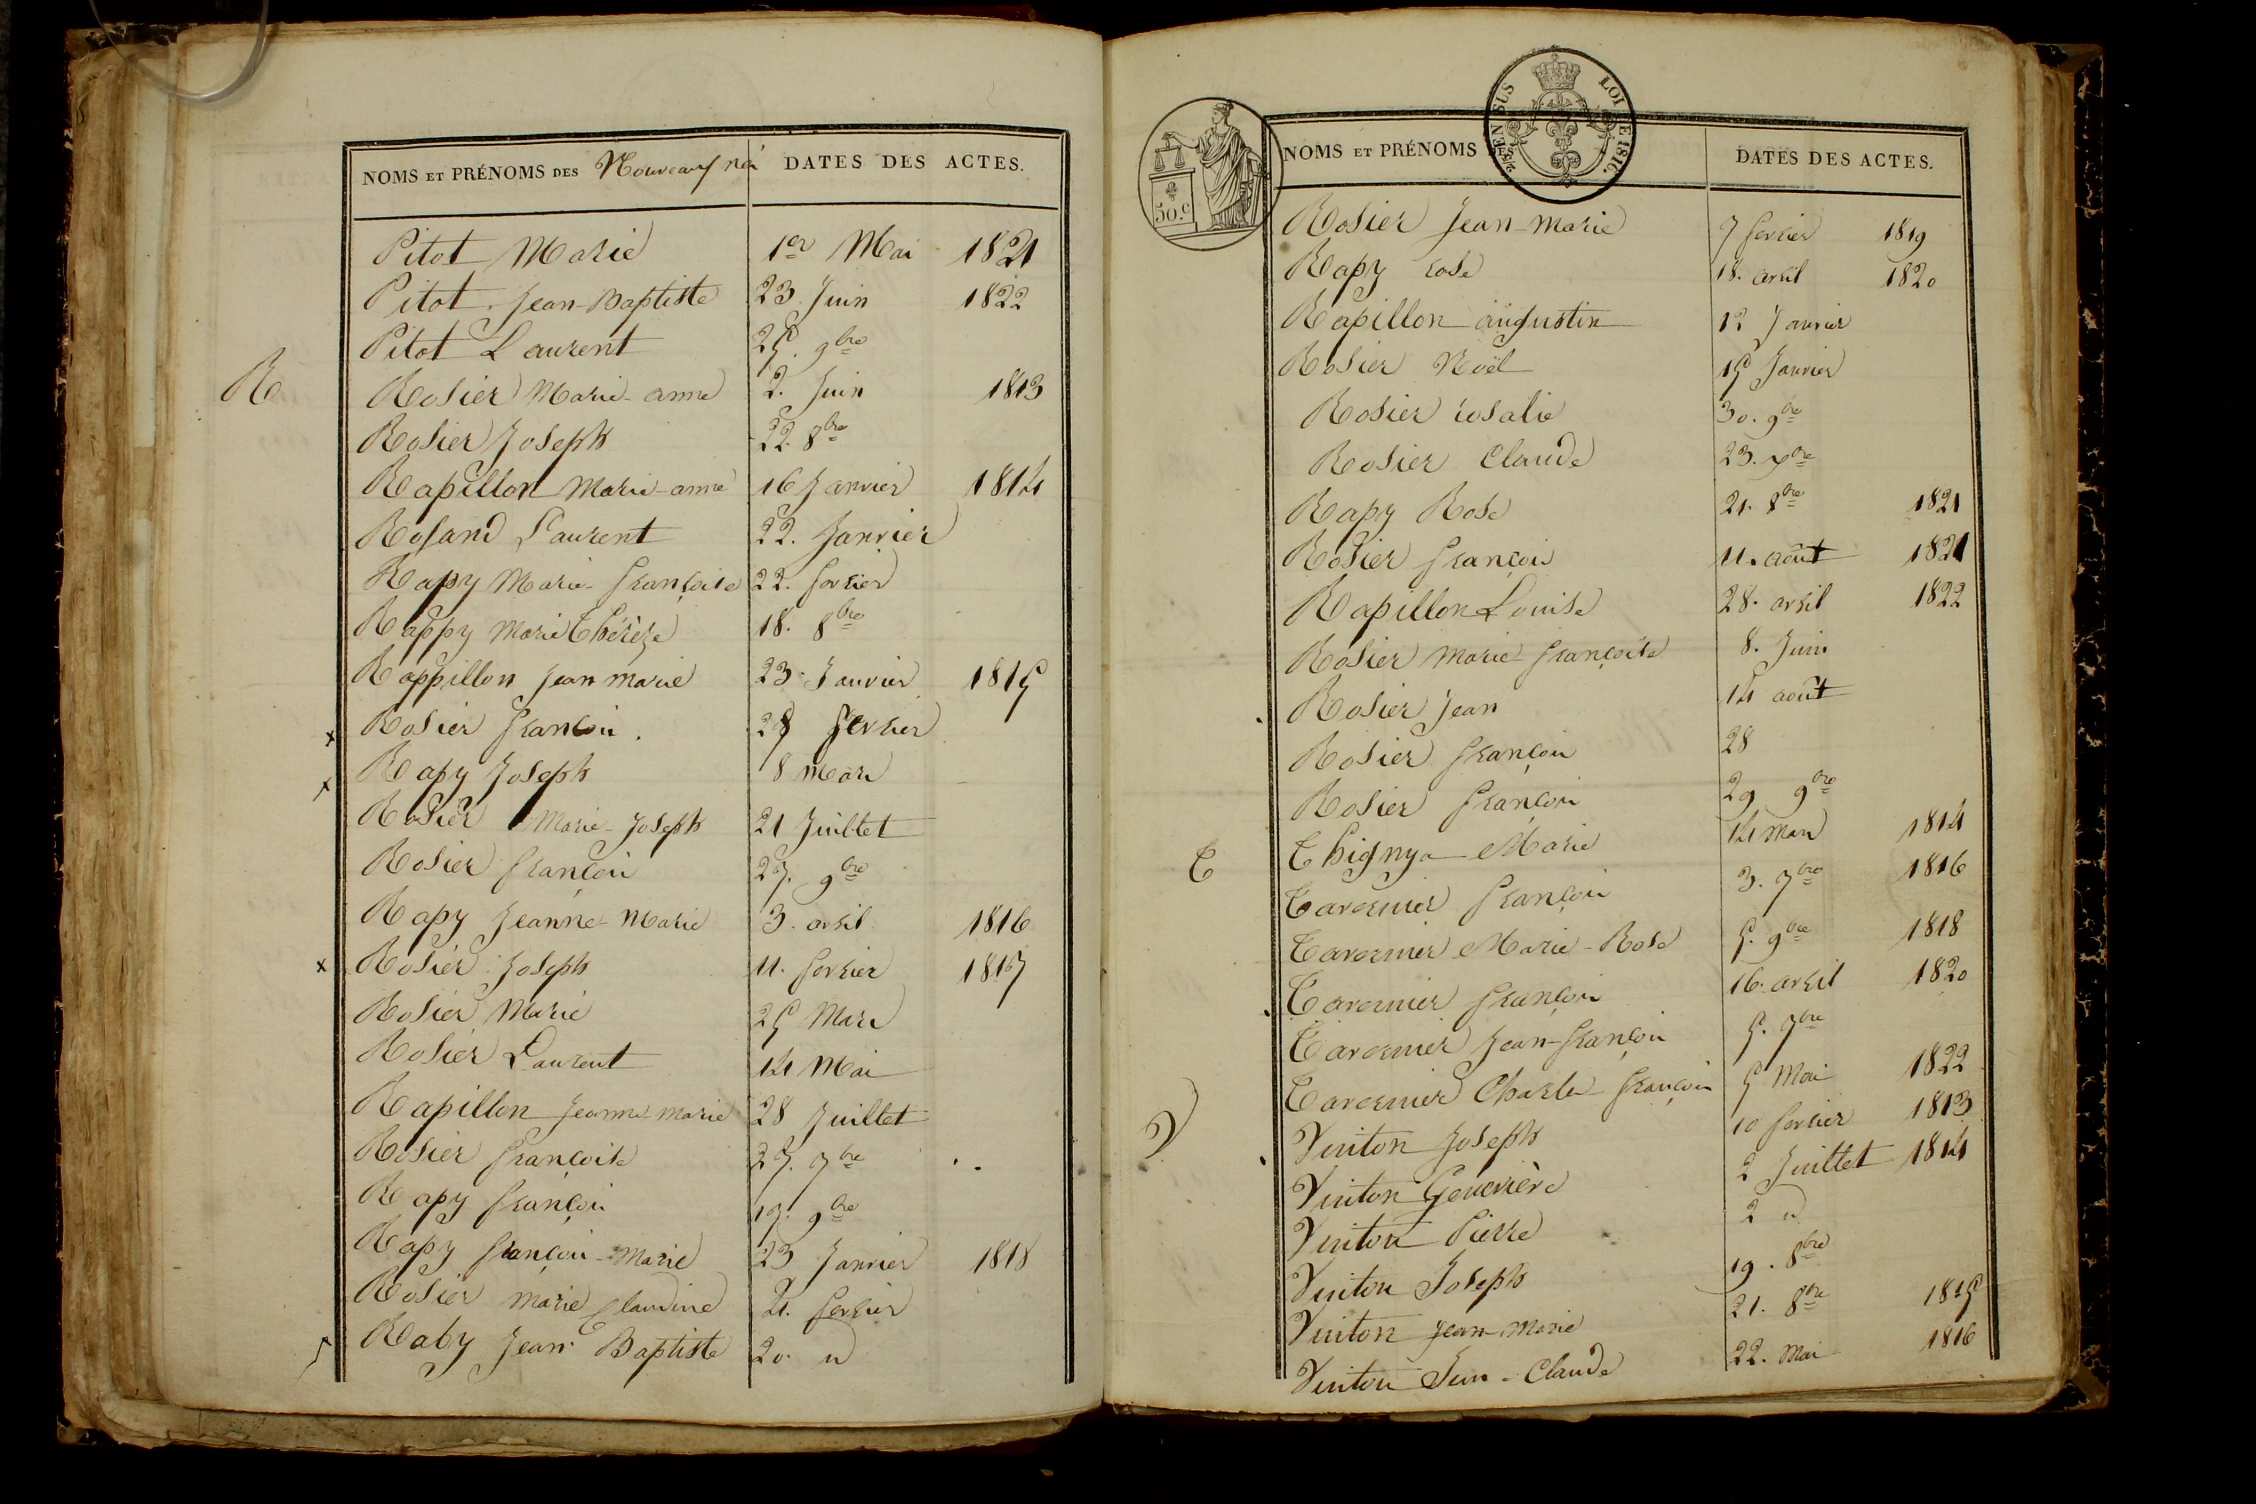 NOMS ET PRÉNOMS DES Nouveaux nés DATES DES ACTES.
Pitot Marie 1er Mai 1821
Pitot Jean-Baptiste 23. Juin 1822
Pitot Laurent 25. 9bre
R Rosier Marie-anne 2. Juin 1813
Rosier Joseph 22. 8bre
Rapillon Marie-anne 16 Janvier 1814
Rosand Laurent 22. Janvier
Rapy Marie-françoise 22. fevrier
Rappy Marie Thérèze 18. 8bre
Rappillon Jean marie 23 Janvier 1815
x Rosier françois. fevrier
x Rapy Joseph 8 Mars
Rosier Marie-Joseph 21 Juillet
Rosier françois 27. 9bre
Rapy Jeanne-Marie 3. avril 1816
x Rosier Joseph 11. fevrier 1817
Rosier Marie 25 Mars
Rosier Laurent 14 Mai
Rapillon Jeanne marie 28 Juillet
Rosier françoise 27. 7bre
Rapy françois 17. 9bre
Rapy françois-Marie 23 Janvier 1818
Rosier marie Claudine 21. fevrier
Raby Jean Baptiste 20. u
50.c
LOI DE 1816.
NOMS ET PRÉNOMS DES DATES DES ACTES.
Rosier Jean-marie 7 fevrier 1819
Rapy rose 18. avril 1820
Rapillon augustin 12 Janvier
Rosier Noël 15 Janvier
Rosier rosalie 30. 9bre
Rosier Claude 23. xbre
Rapy Rose 21. 8bre 1821
Rosier françois 11. août 1821
Rapillon Louise 28. avril 1822
Rosier marie-françoise 8. Juin
Rosier Jean 14 août
Rosier françois 28
Rosier françois 29 9bre
T Thignya Marie 14 mars 1814
Tavernier françois 3. 7bre 1816
Tavernier Marie-Rose 5. 9bre 1818
Tavernier françois 16. avril 1820
Tavernier Jean-françois 5. 7bre
Tavernier Charles-françois 5 Mai 1822
V Viriton Joseph 10 fevrier 1813
Viriton Genevière 2 Juillet 1814
Viriton Pierre 2 u
Viriton Joseph 19. 8bre
Viriton Jean-Marie 21. 8bre 1815
Viriton Jean-Claude 22. Mai 1816